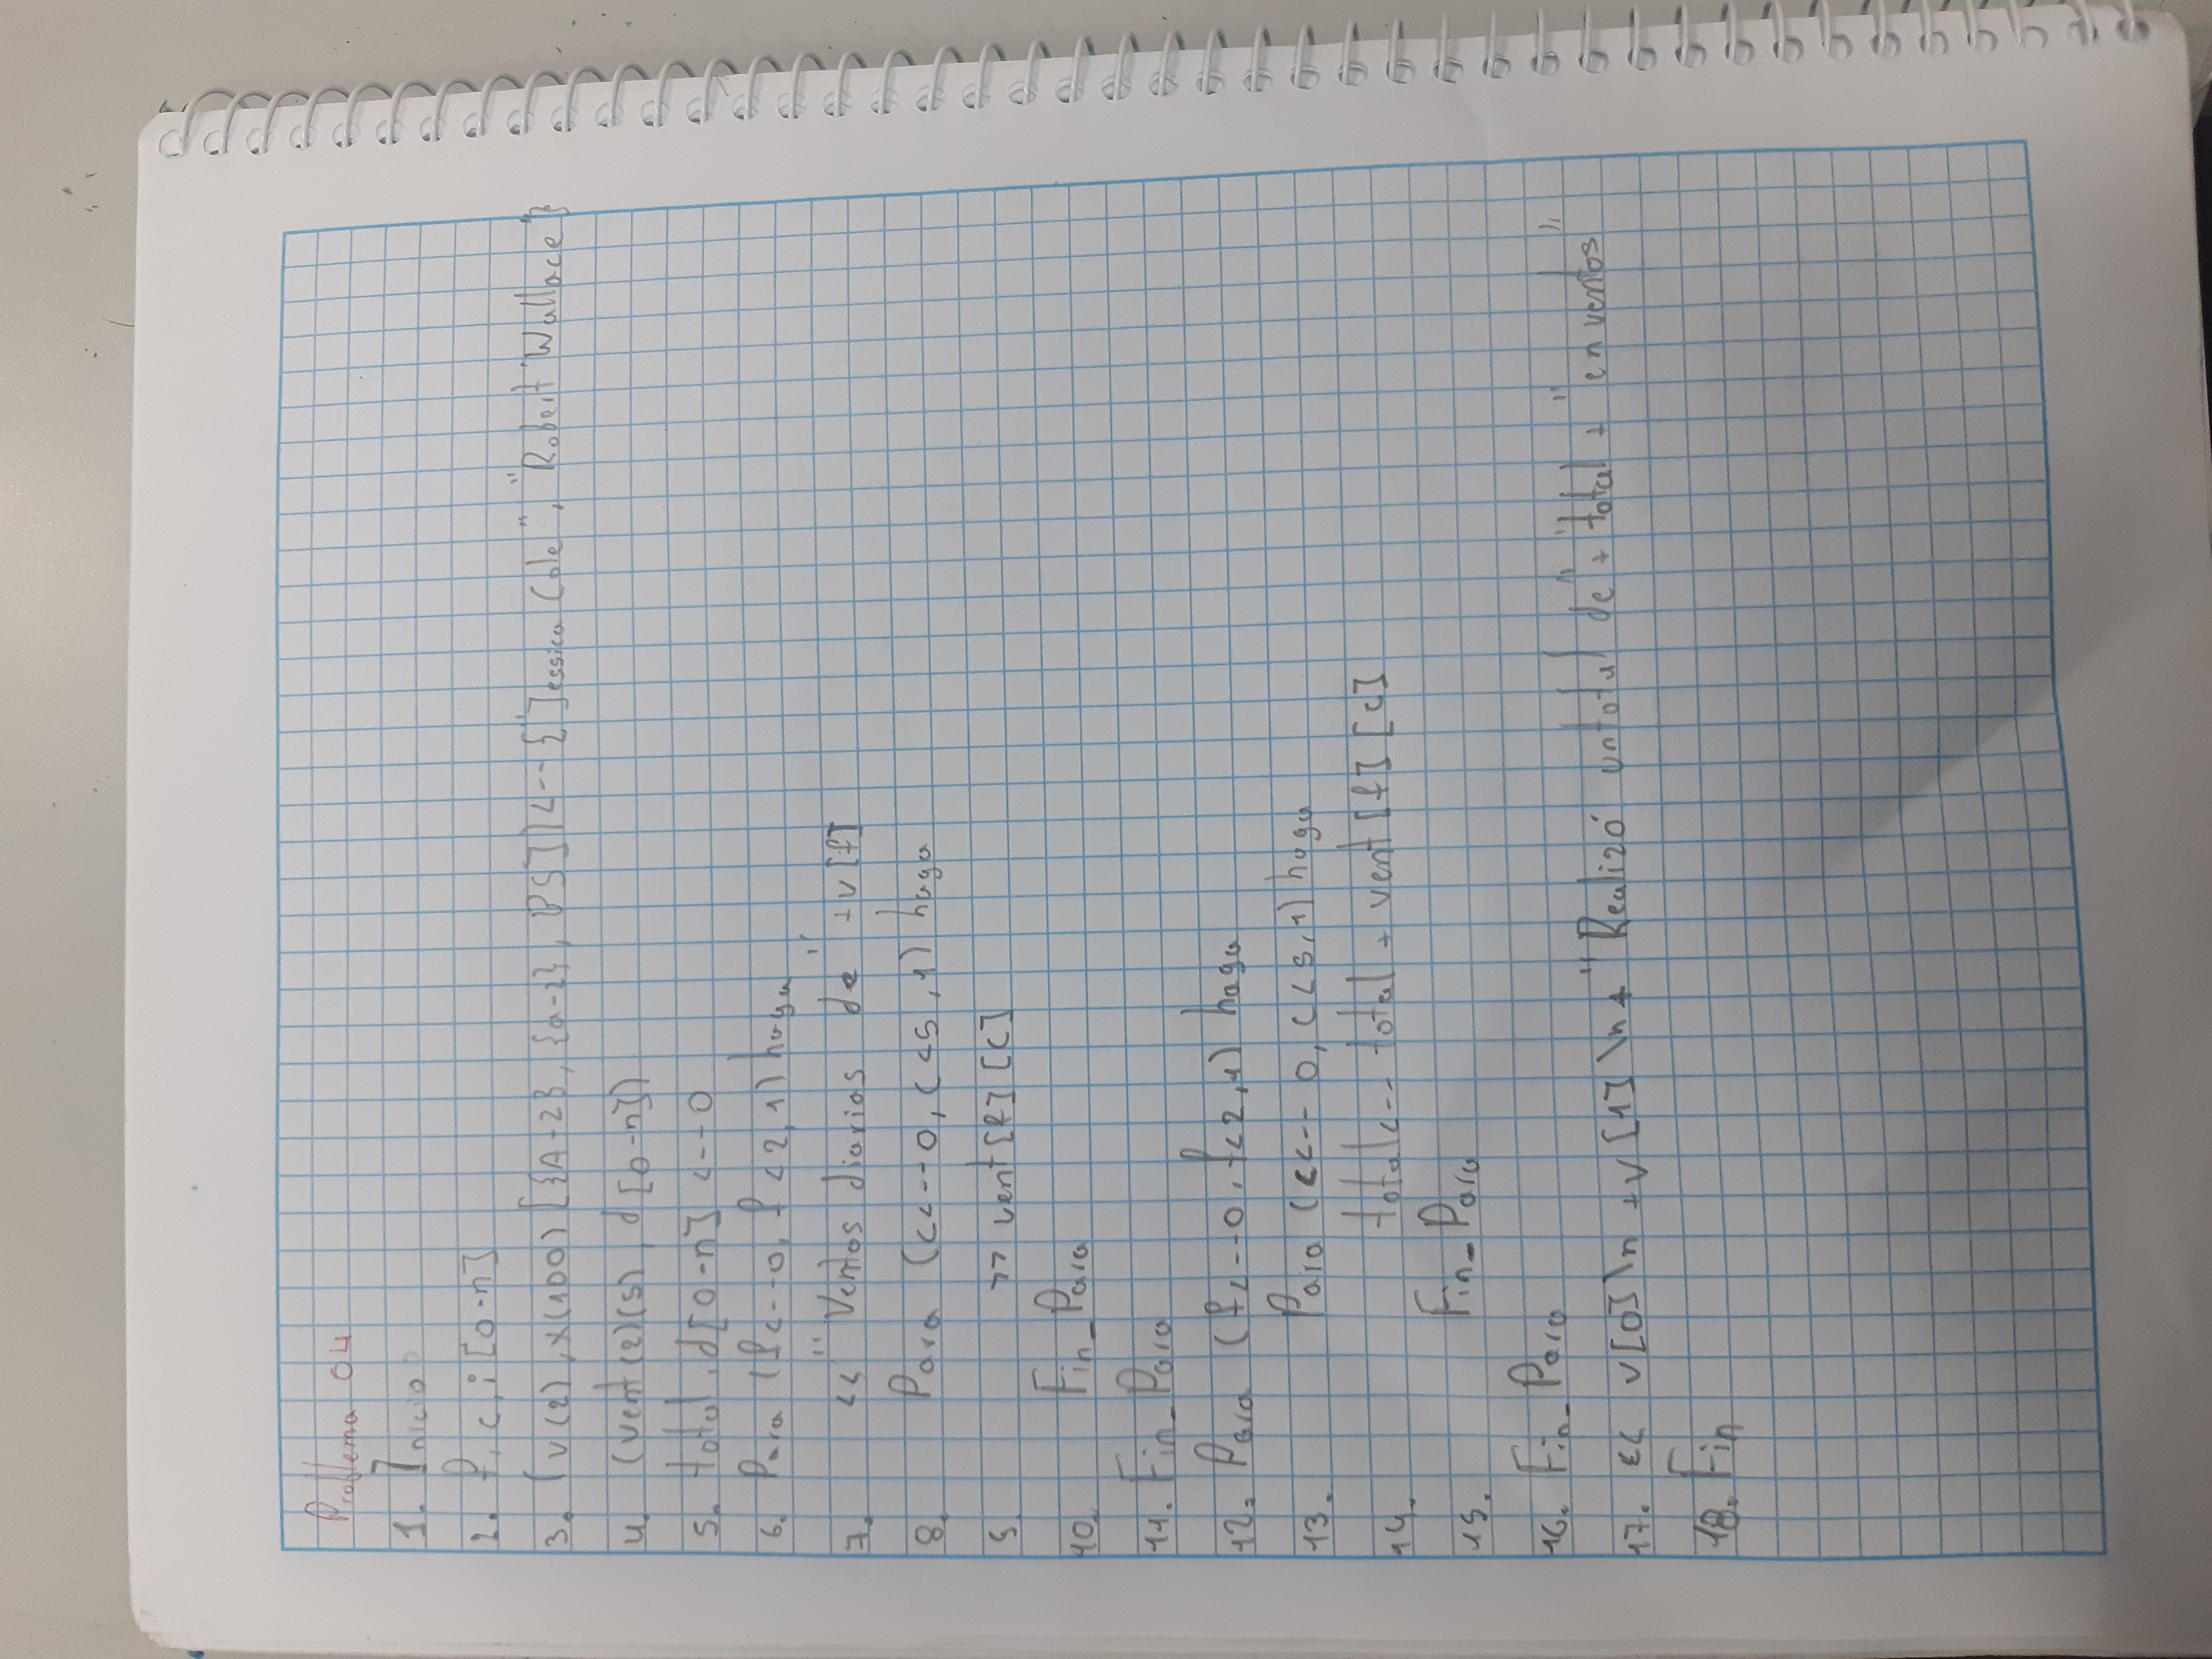 Problema 04
1. Inicio
2. f, c, i [0-n]
3. (v(2), x(100) [{A-Z}, {a-z}, PS]) <-- {"Jessica Cole", "Robert Wallace"}
4. (vent(2)(5), d[0-n])
5. total, d[0-n] <--0
6. Para (f<--0, f<2,1) haga
7. << "Ventas diarias de" +v[f]
8. Para (c<--0, c<5,1) haga
9. >> vent[f][c]
10. Fin_Para
11. Fin_Para
12. Para (f<--0, f<2,1) haga
13. Para (c<--0, c<5,1) haga
14. total<-- total + vent[f][c]
15. Fin_Para
16. Fin_Para
17. << v[0]\n +v[1]\n+ "Realizó un total de" + total + "en ventas"
18. Fin